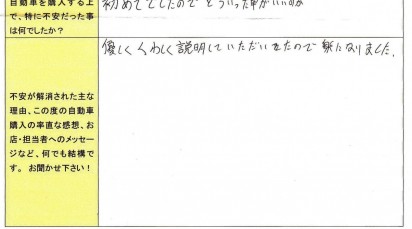 自動車を購入する上
で、特に不安だった事
は何でしたか?
初めてでしたのでどういった車がいいのか
優しくくわしく説明していただいたので 楽になりました。
不安が解消された主な
理由、この度の自動車
購入の率直な感想、お
店・担当者へのメッセー
ジなど、何でも結構で
す。 お聞かせ下さい!